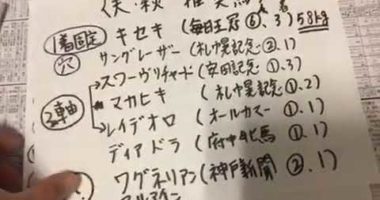 (天・秋
1着固定 キセキ (毎日王冠⑥、3) 58kg
人 着
穴 サングレーザー (札幌記念②.1)
スワーヴリチャード (安田記念①.3)
2頭軸 マカヒキ (札幌記念①.2)
レイデオロ (オールカマー①.1)
ディアドラ (府中牝馬①.1)
ワグネリアン (神戸新聞②.1)